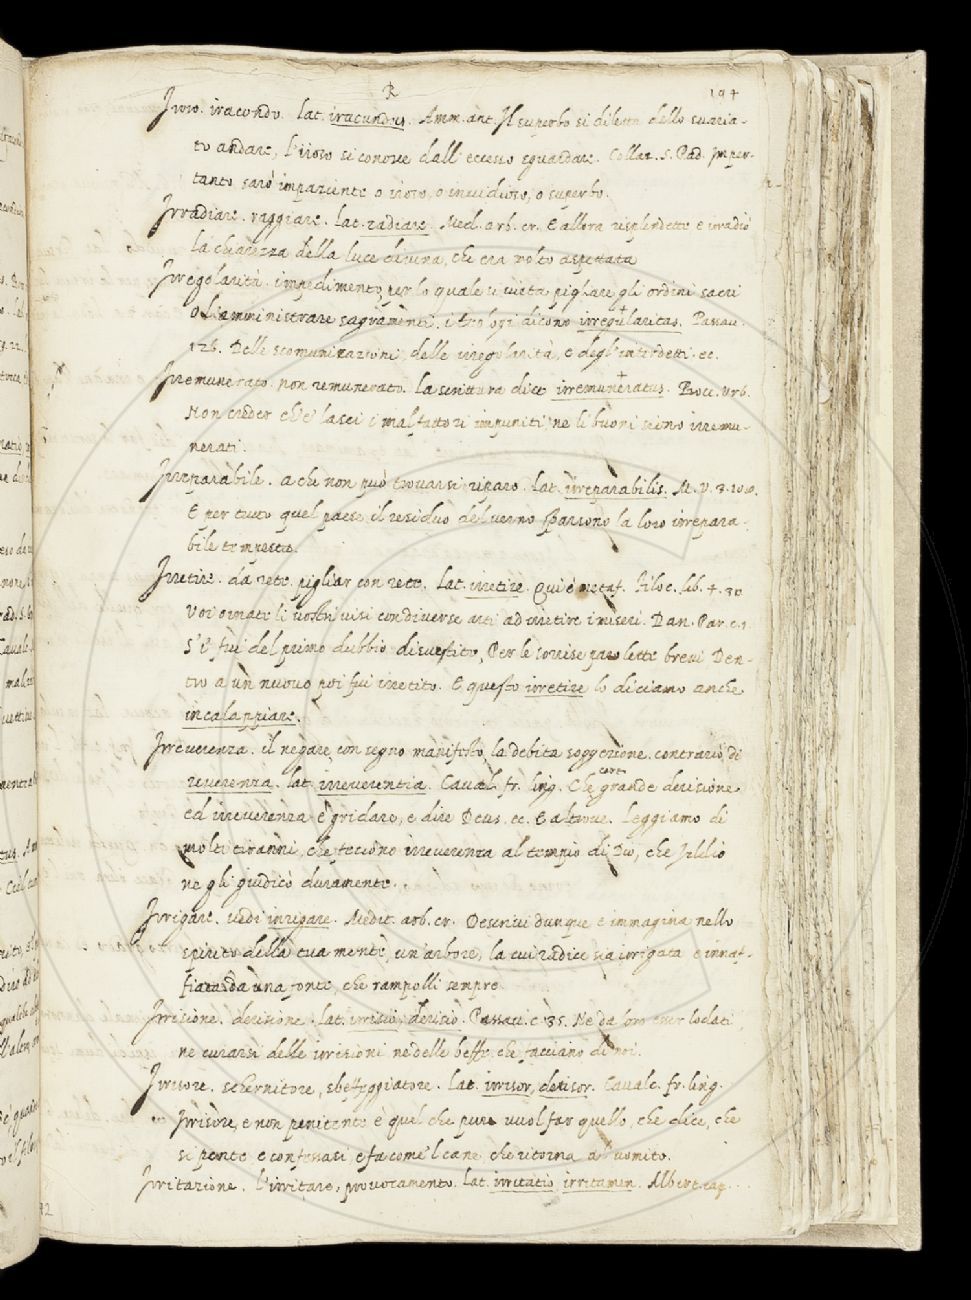 R
194
Iroso. iracondo. lat. iracundus. Amm. ant. Il superbo si diletta dello svaria-
to andare, l'iroso si conosce dall'eccesso sguardare. Collaz. S. Pad. Imper-
tanto sarò impaziente o iroso, o invidioso, o superbo.
Irradiare. raggiare. lat. radiare. Med. arb. cr. E allora risplendette e irradiò
la chiarezza della luce divina, che era molto aspettata
Irregolarità. impedimento, per lo quale si vieta pigliare gli ordini sacri
o l'amministrare sagramenti. i teologi dicono irregularitas. Passav.
126. Delle scomunicazioni, delle irregolarità, e degl'interdetti. ec.
Irremunerato. non remunerato. la scrittura dice irremuneratus. Bocc. urb.
Non creder ch'e' lasci i malfattori impuniti ne li buoni sieno irremu-
nerati.
Irreparabile. a che non può trovarsi riparo. lat. irreparabilis. M. V. 3.
E per tutto quel paese il residuo del verno sparsono la loro irrepara-
bile tempesta.
Irretire. da rete. pigliar con rete. lat. irretire. Qui è metaf. Filoc. lib. 4. 30
Voi ornate li vostri visi con diverse arti ad irretire i miseri. Dan. Par. c. 1
S'i' fui del primo dubbio disvestito, Per le sorrise parolette brevi Den-
tro a un nuovo poi fui irretito. E questo irretire lo diciamo anche
incalappiare.
Irreverenza. il negare, con segno manifesto, la debita soggezione. contrario di
reverenza. lat. irreverentia. Caval. fr. ling. Che certo grande derisione
ed irreverenza è gridare, e dire Deus. ec. E altrove. Leggiamo di
molti tiranni, che feciono irreverenza al tempio di Dio, che Iddio
ne gli giudicò duramente.
Irrigare. vedi inrigare. Medit. arb. cr. Descrivi dunque e immagina nello
spirito della tua mente, un'arbore, la cui radice sia irrigata e innaf-
fiata da una fonte, che rampolli sempre.
Irrisione. derisione. lat. irrisio, derisio. Passav. c. 35. Ne da loro esser lodati
ne curarsi delle irrisioni ne delle beffe che facciano di noi.
Irrisore. schernitore, sbeffeggiatore. lat. irrisor, derisor. Cavalc. fr. ling.
Irrisore, e non penitente è quel che pure vuol far quello, che dice, che
si pente e confessasi e fa come 'l cane che ritorna al vomito.
Irritazione. l'irritare, provocamento. lat. irritatio irritamen. Albert. cap.
92